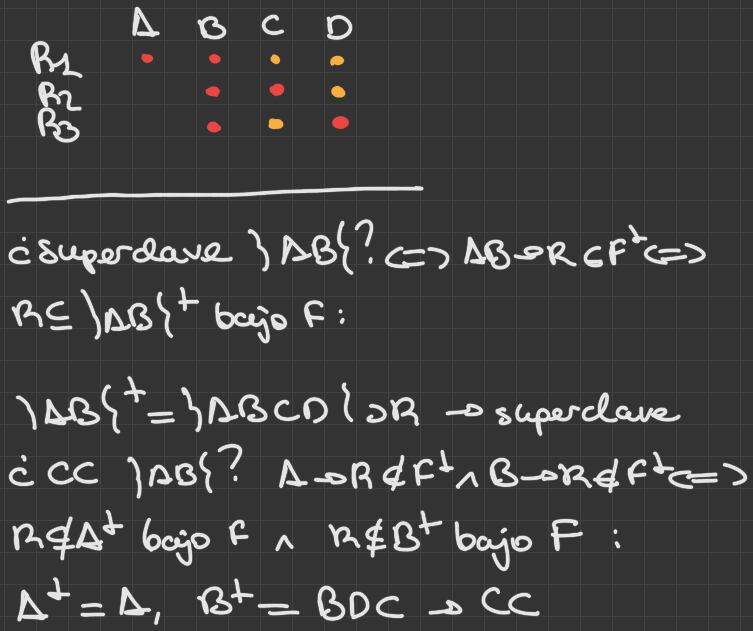 A B C D
R1
R2
R3
¿superclave }AB{? <=> AB→R ∈ F⁺ <=>
R ⊆ }AB{⁺ bajo F:
}AB{⁺ = }ABCD{ ⊃ R → superclave
¿CC }AB{? A→R ∉ F⁺ ∧ B→R ∉ F⁺ <=>
R ⊈ A⁺ bajo F ∧ R ⊈ B⁺ bajo F :
A⁺ = A, B⁺ = BDC → CC